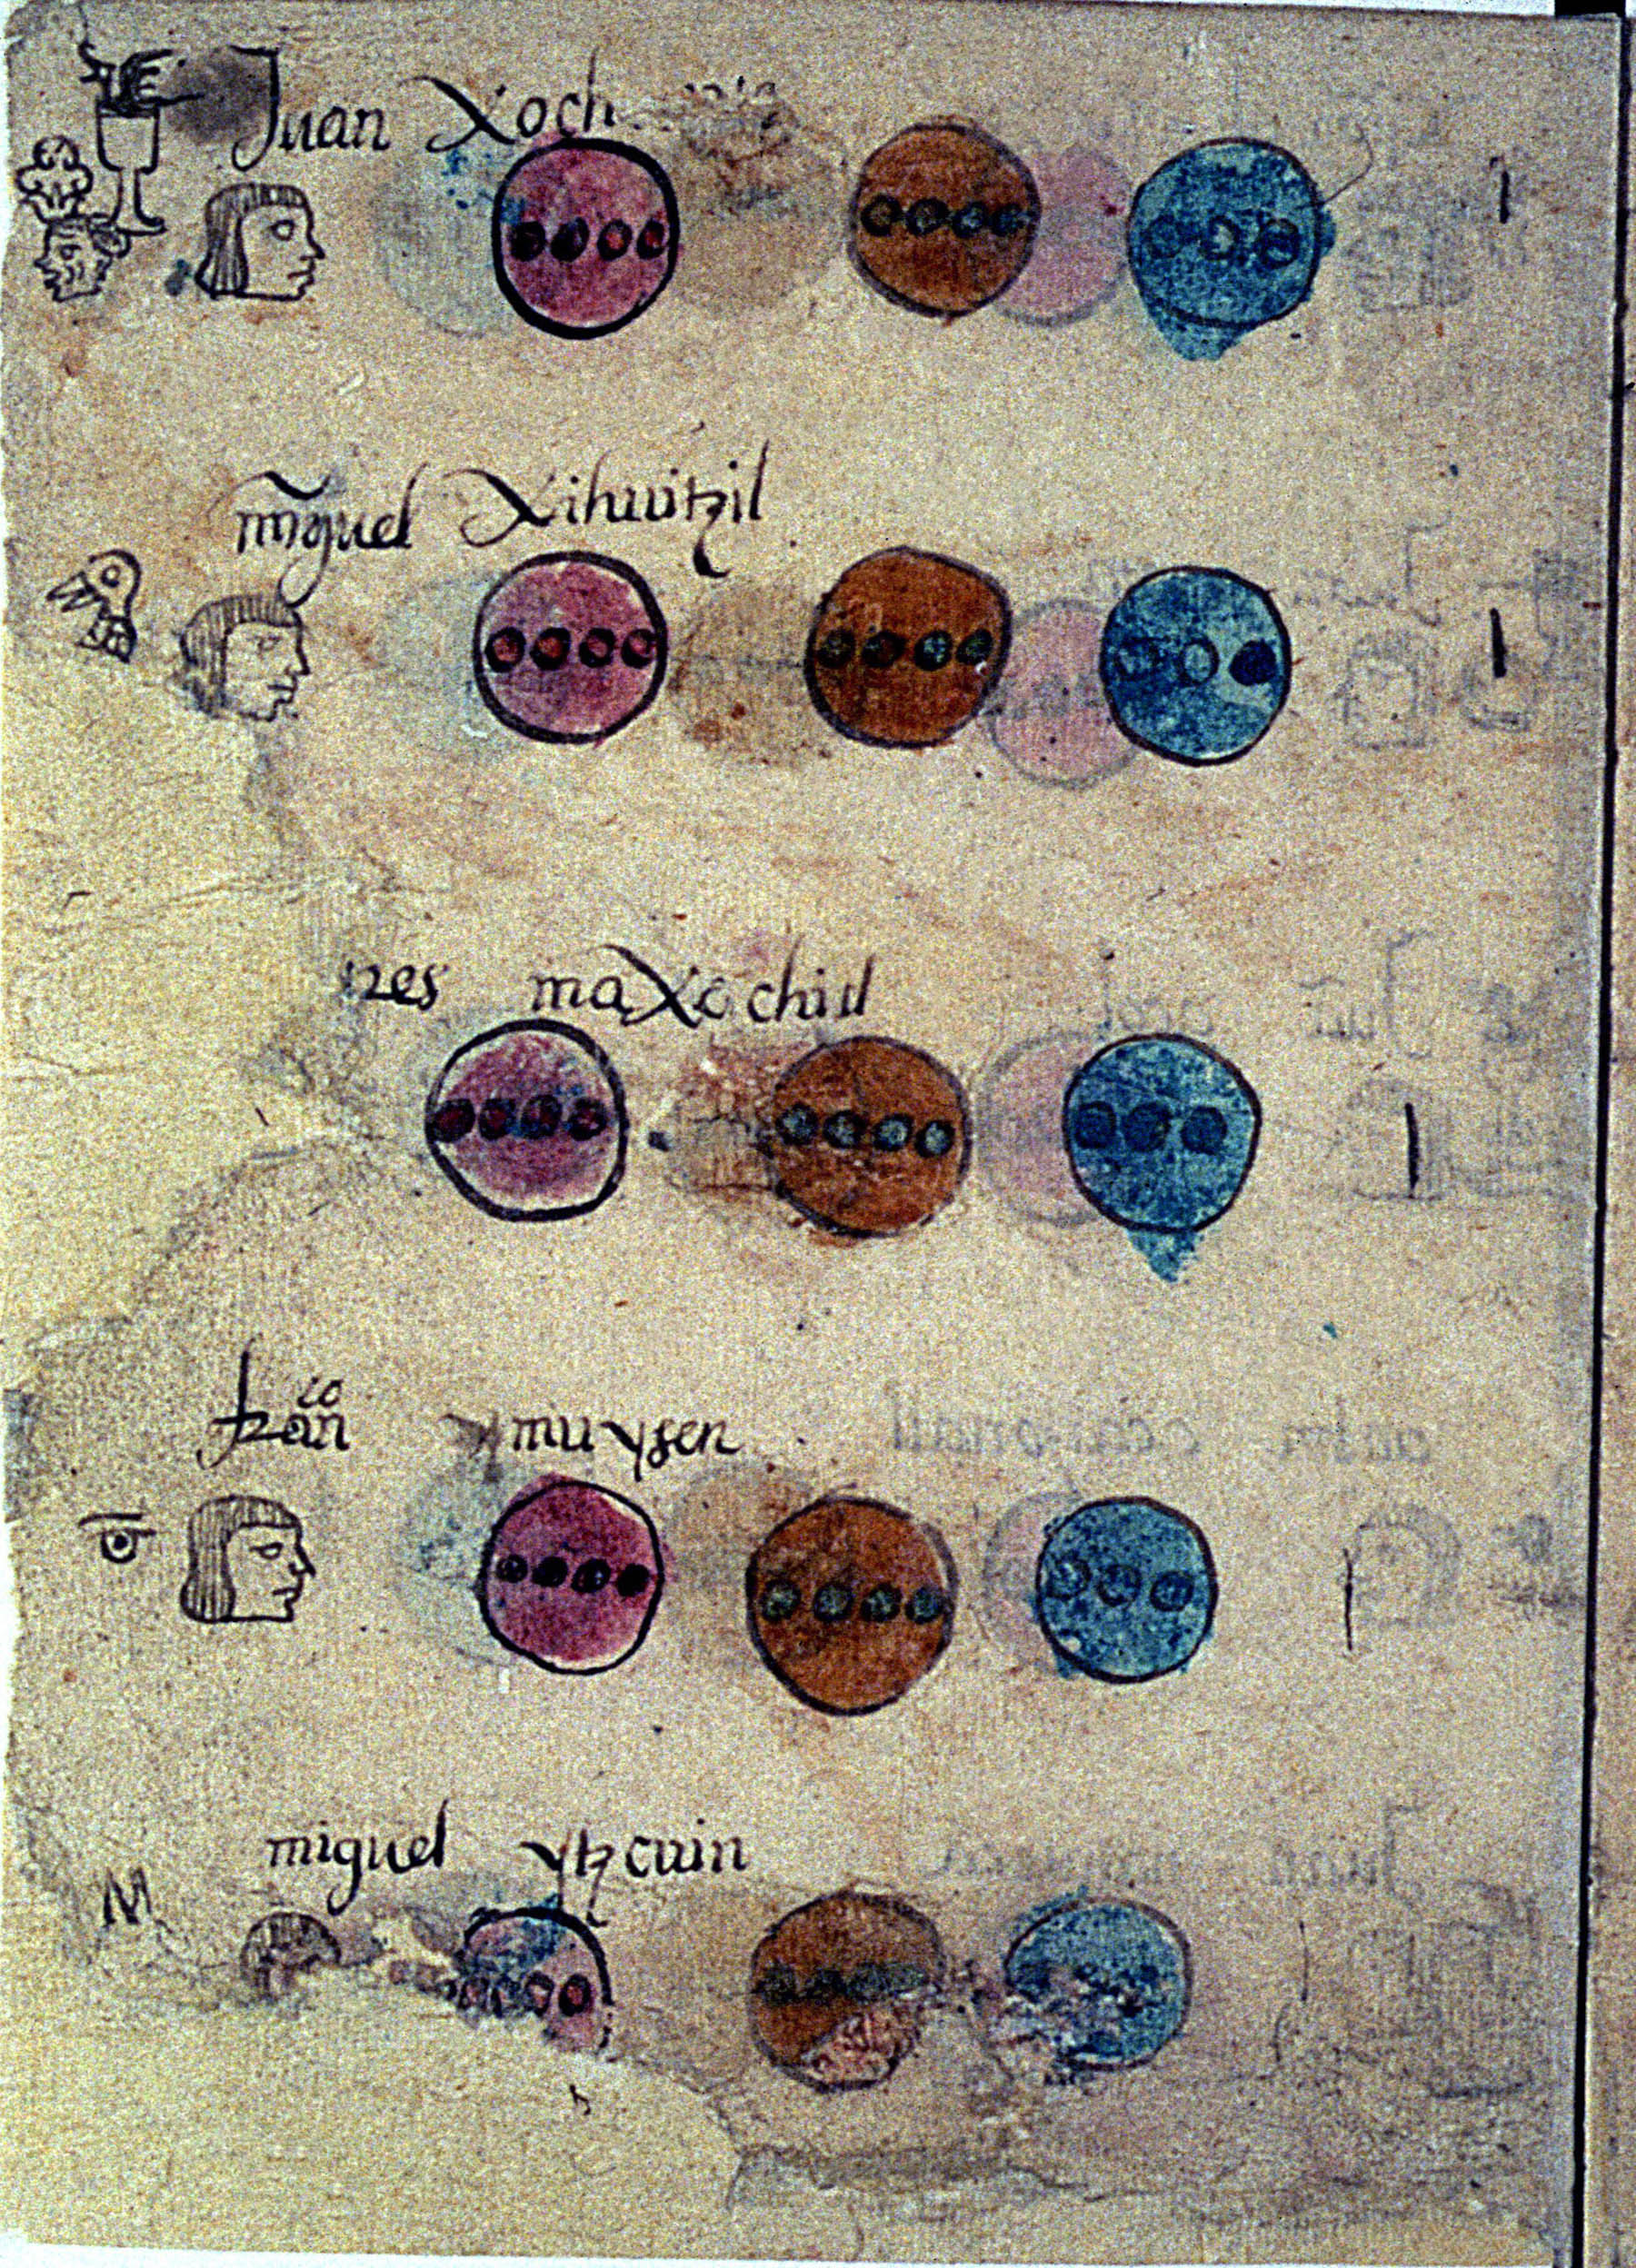 Juan Xoch
miguel Xihuitzil
res maXochitl
franco ymuysen
miguel ytzcuin